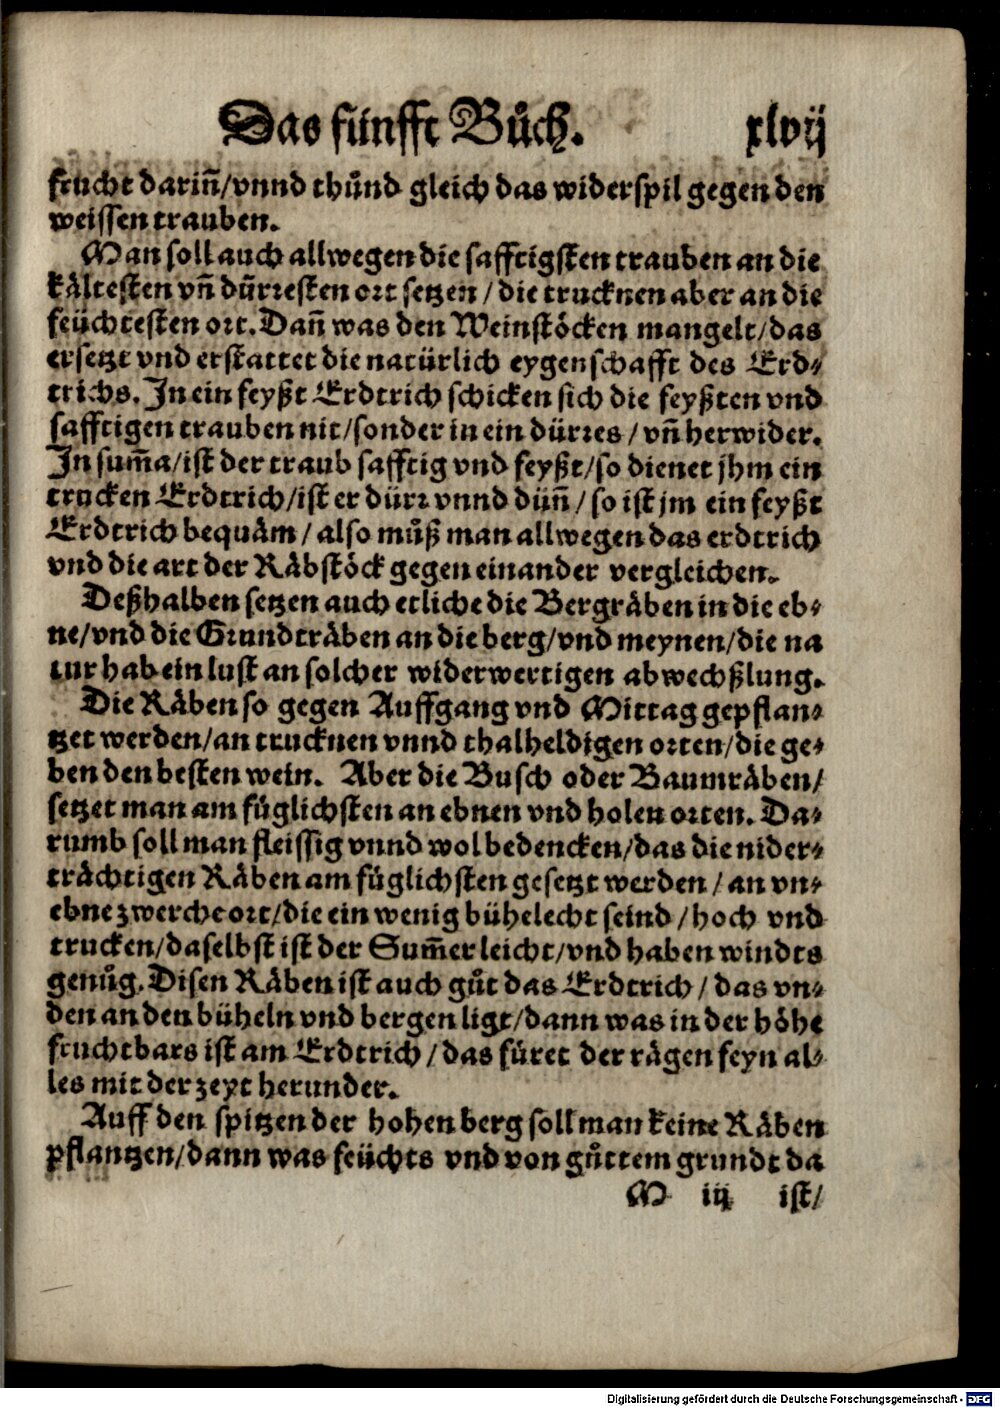 Das fünfft Bůch. xlvij
frucht dariñ/vnnd thůnd gleich das widerspil gegen den
weissen trauben.
Man soll auch allwegen die safftigsten trauben an die
kältesten vñ dürresten ort setzen/die trucknen aber an die
feüchtesten ort. Dañ was den Weinstöcken mangelt/das
ersetzt vnd erstattet die natürlich eygenschafft des Erd⸗
trichs. In ein feyßt Erdtrich schicken sich die feyßten vnd
safftigen trauben nit/sonder in ein dürres/vñ herwider.
In sum̃a/ist der traub safftig vnd feyßt/so dienet jhm ein
trucken Erdtrich/ist er dürr vnnd düñ/so ist jm ein feyßt
Erdtrich bequäm/also můß man allwegen das erdtrich
vnd die art der Räbstöck gegen einander vergleichen.
Deßhalben setzen auch etliche die Bergräben in die eb⸗
ne/vnd die Grundträben an die berg/vnd meynen/die na
tur hab ein lust an solcher widerwertigen abwechßlung.
Die Räben so gegen Auffgang vnd Mittag gepflan⸗
tzet werden/an trucknen vnnd thalheldigen orten/die ge⸗
ben den besten wein. Aber die Busch oder Baumräben/
setzet man am füglichsten an ebnen vnd holen orten. Da⸗
rumb soll man fleissig vnnd wol bedencken/das die nider⸗
trächtigen Räben am füglichsten gesetzt werden/an vn⸗
ebne zwerche ort/die ein wenig bühelecht seind/hoch vnd
trucken/daselbst ist der Sum̃er leicht/vnd haben windts
genůg. Disen Räben ist auch gůt das Erdtrich/das vn⸗
den an den büheln vnd bergen ligt/dann was in der höhe
fruchtbars ist am Erdtrich/das füret der rägen feyn al⸗
les mit der zeyt herunder.
Auff den spitzen der hohen berg soll man keine Räben
pflantzen/dann was feüchts vnd von gůttem grundt da
M iij ist/
Digitalisierung gefördert durch die Deutsche Forschungsgemeinschaft - DFG